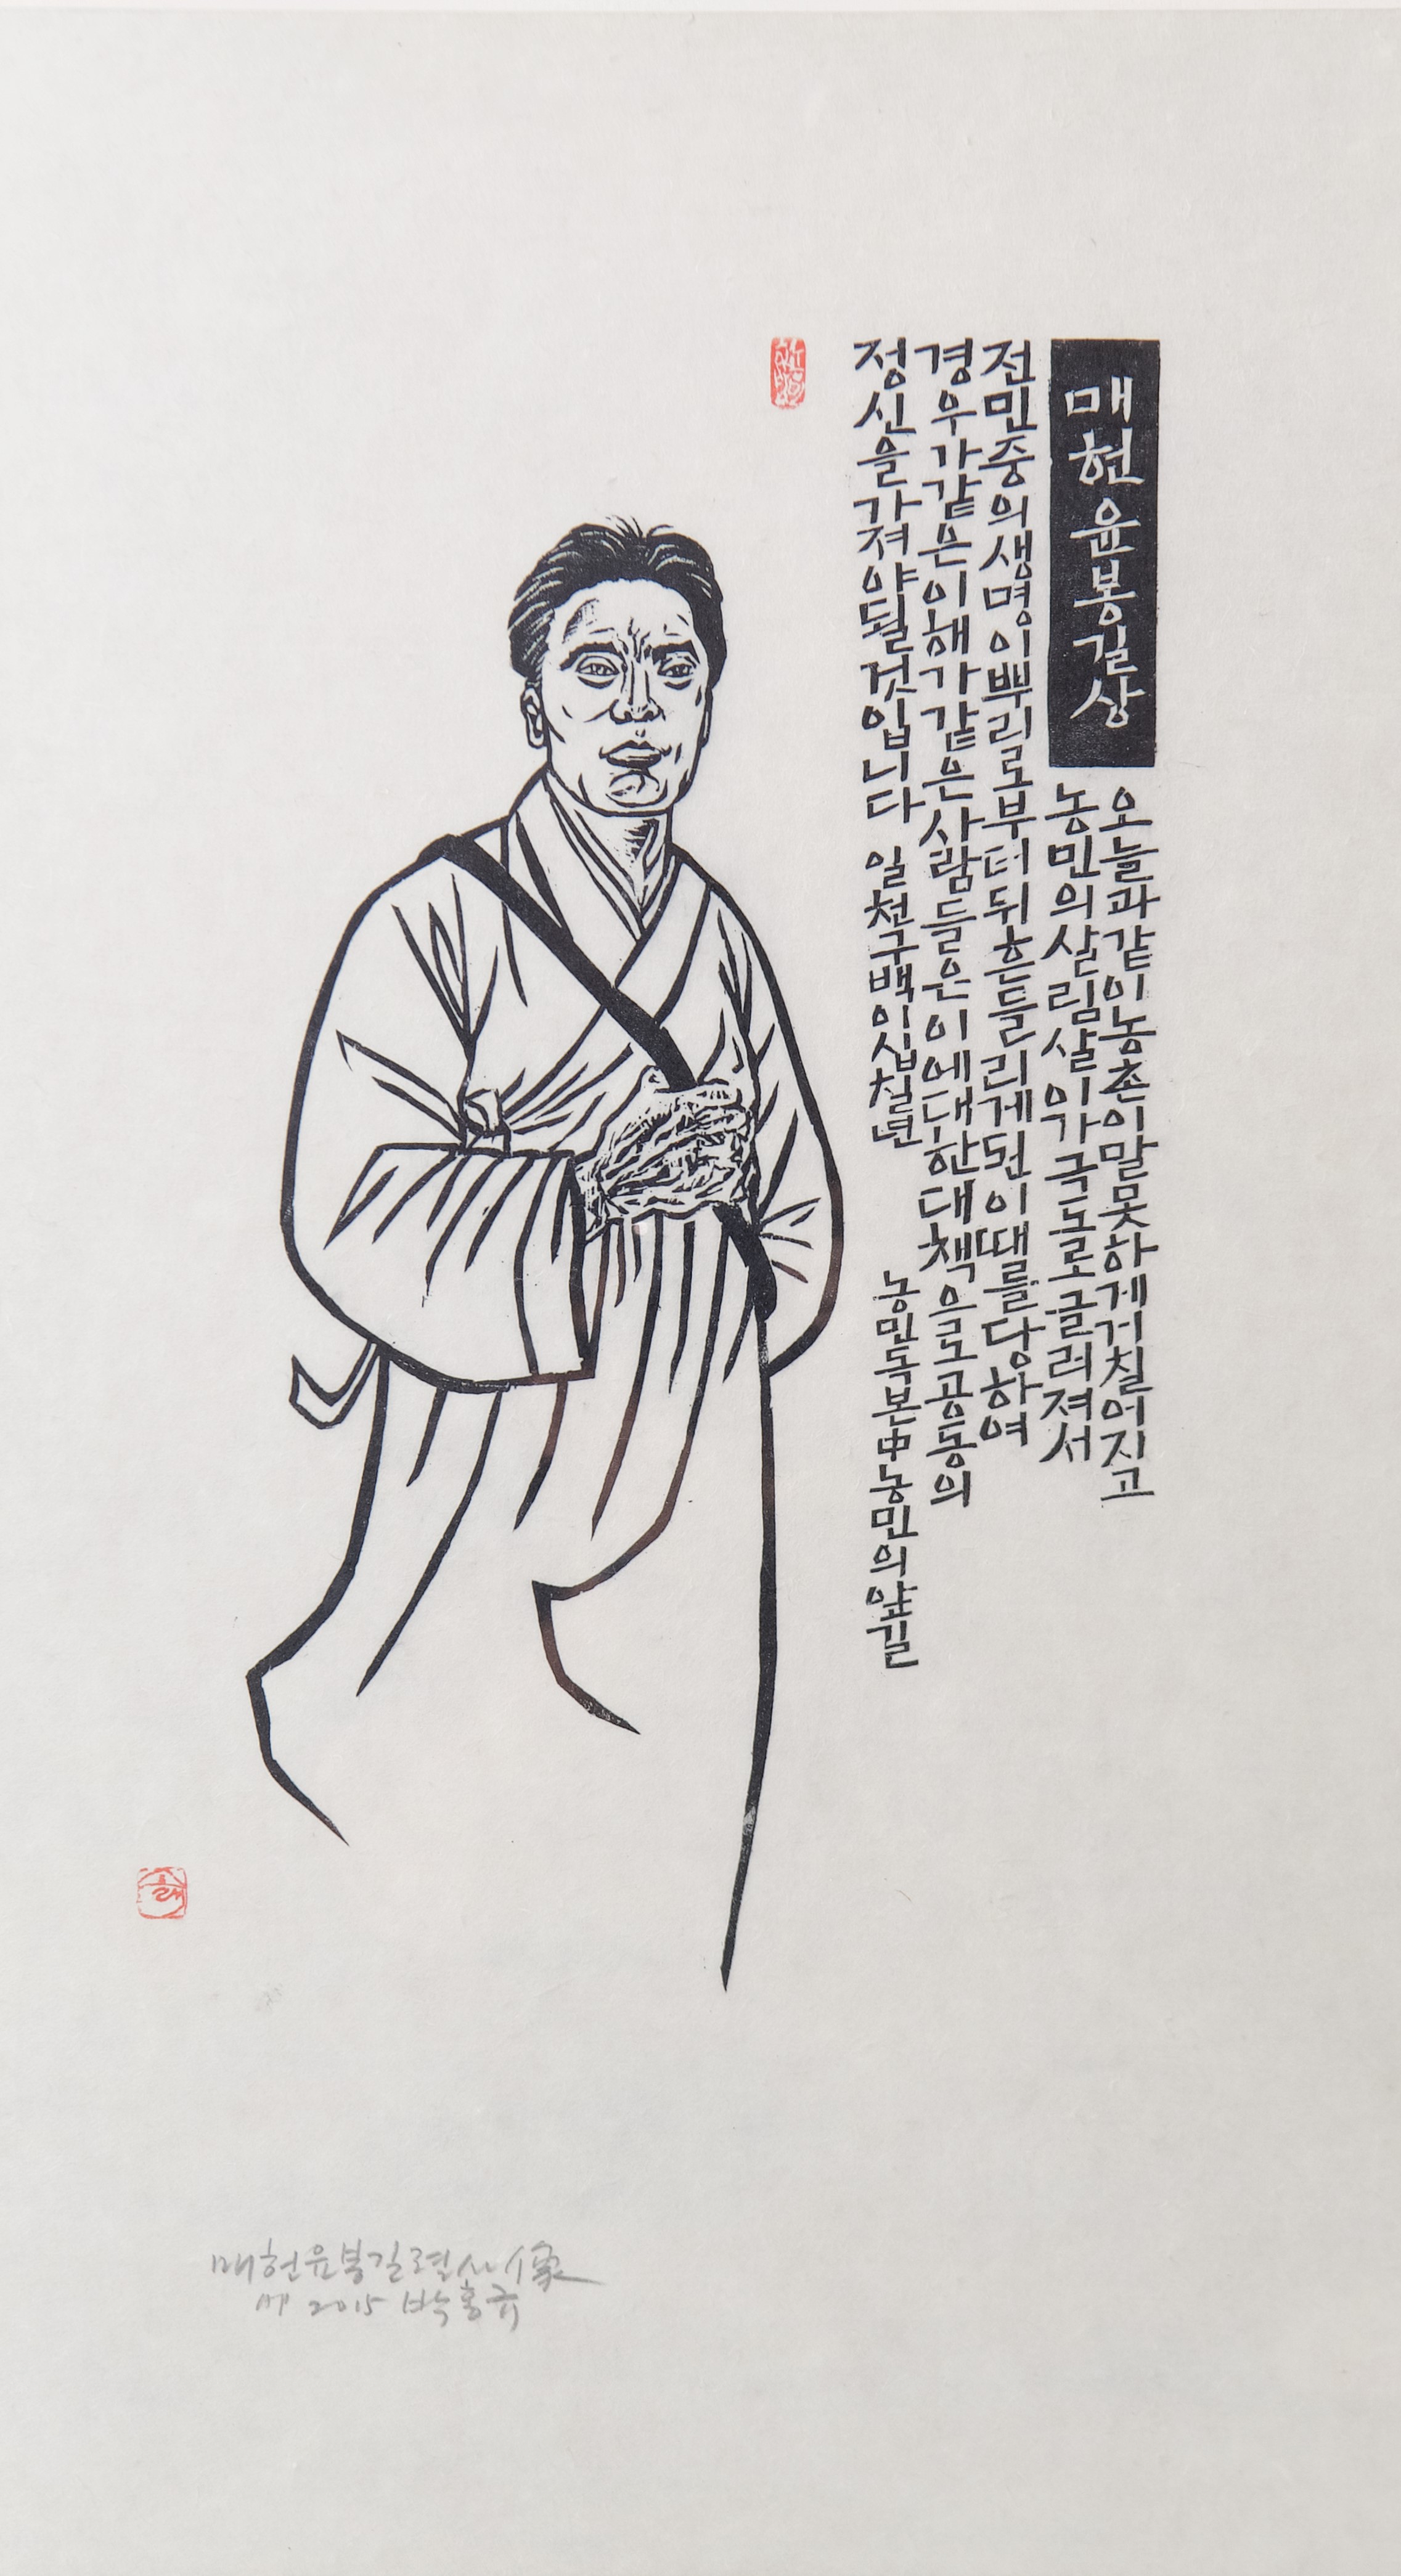 매헌윤봉길상
오늘과같이농촌이말못하게거칠어지고
농민의살림살이가극도로글러져서
전민중의생명이뿌리로부터뒤흔들리게된이때를당하여
경우가같은이해가같은사람들은이에대한대책으로공동의
정신을가져야될것입니다 일천구백이십칠년 농민독본中농민의앞길
매헌윤봉길열사像
AP 2015 박홍규